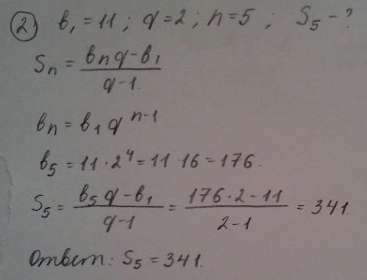 ② b₁ = 11; q = 2; n = 5; S₅ - ?
Sₙ = (bₙq - b₁)/(q - 1)
bₙ = b₁qⁿ⁻¹
b₅ = 11 · 2⁴ = 11 · 16 = 176.
S₅ = (b₅q - b₁)/(q - 1) = (176 · 2 - 11)/(2 - 1) = 341.
Ответ: S₅ = 341.